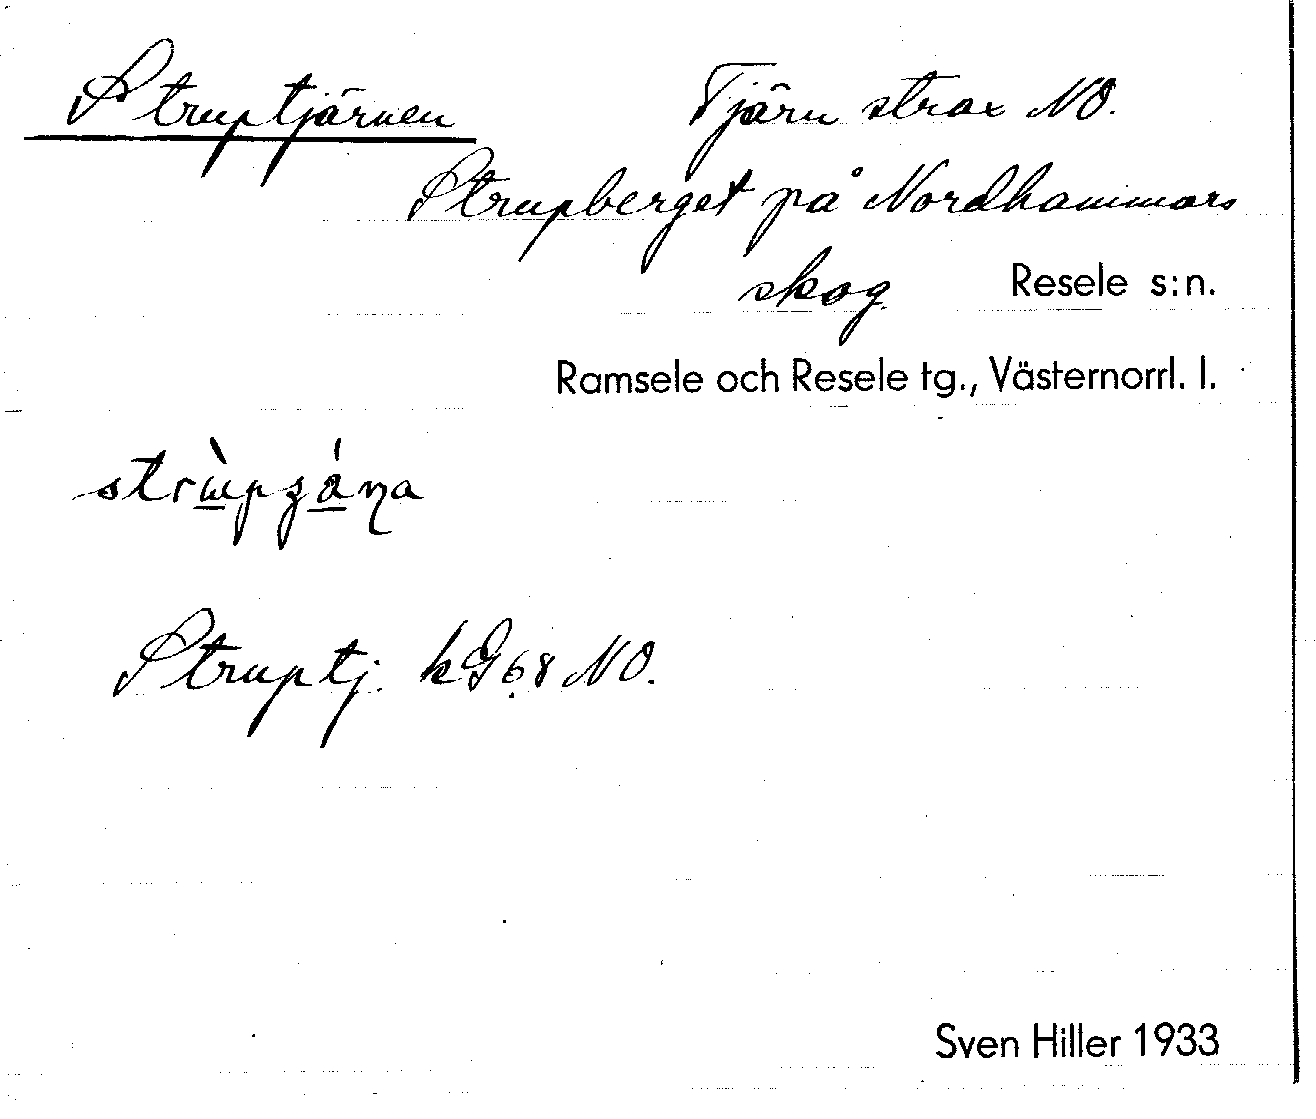 Struptjärnen Tjärn strax NO.
Strupberget på Nordhammars
skog Resele s:n.
Ramsele och Resele tg., Västernorrl. l.
Struptj. kG68 NO.
Sven Hiller 1933